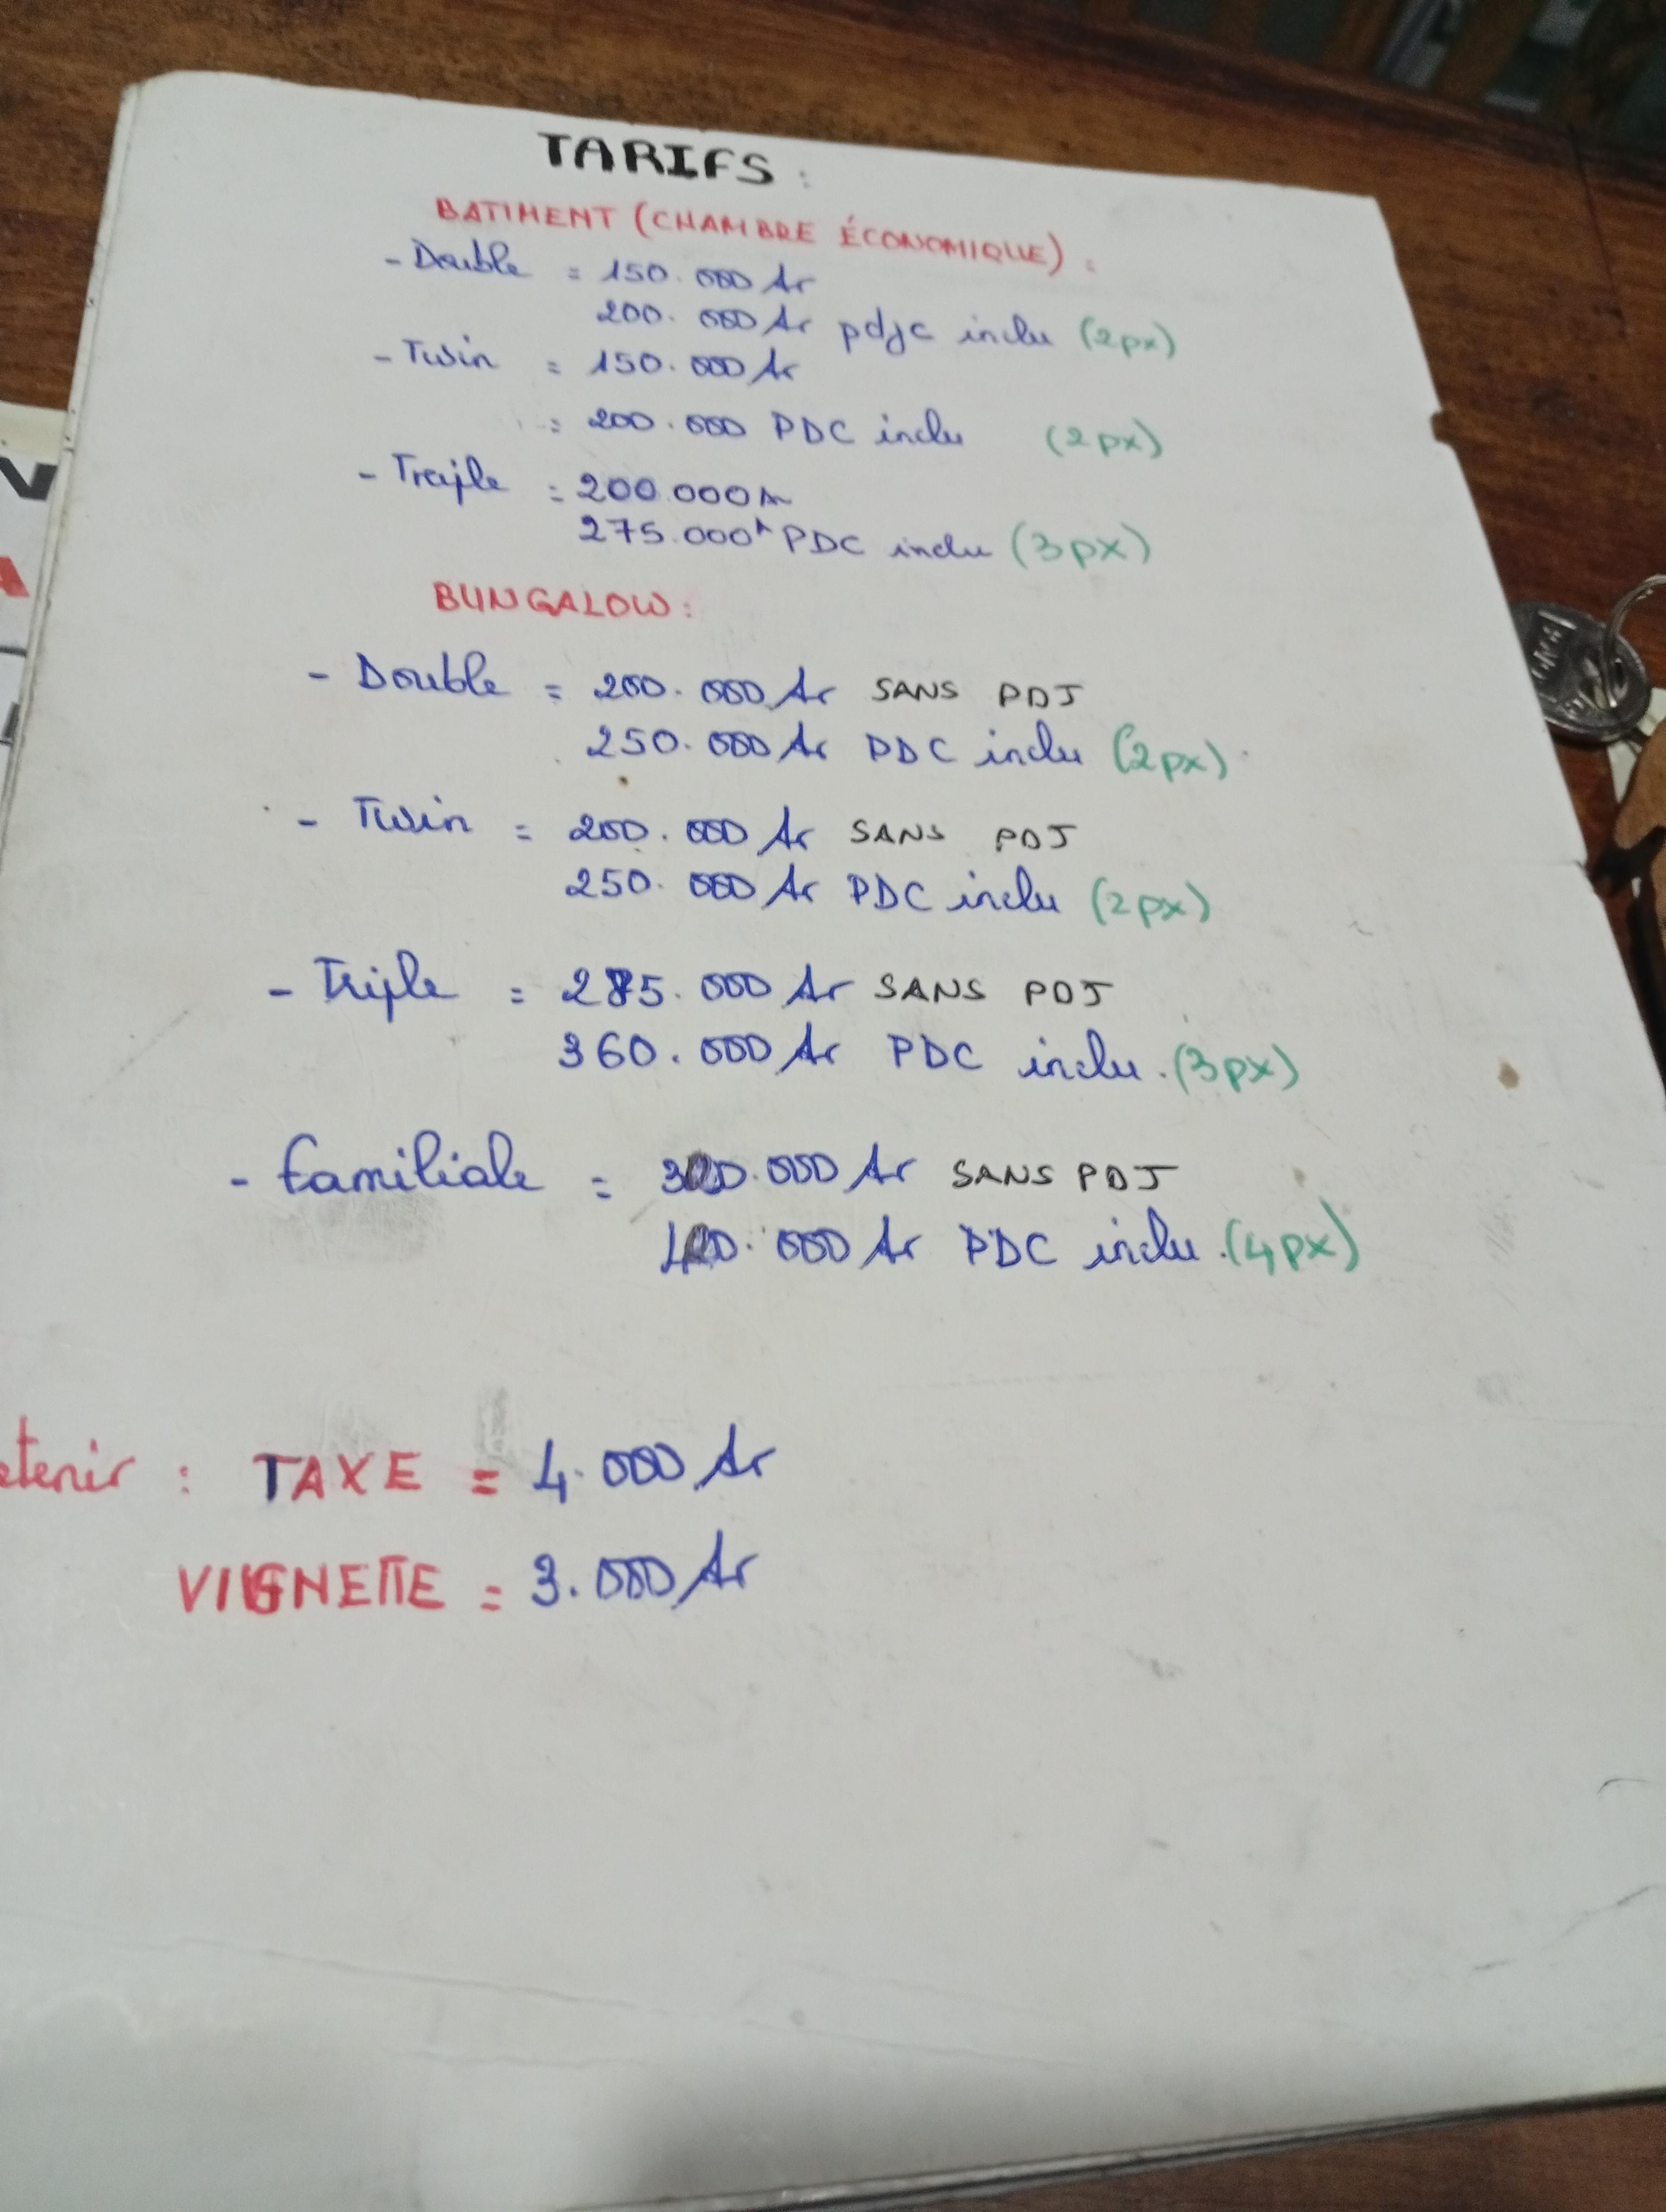 TARIFS :
BATIMENT (CHAMBRE ÉCONOMIQUE) :
- Double = 150.000 Ar
200.000 Ar pdjc inclu (2px)
- Twin = 150.000 Ar
= 200.000 PDC inclu (2px)
- Trajle = 200.000 Ar
275.000 A PDC inclu (3px)
BUNGALOW :
- Double = 200.000 Ar SANS PDJ
250.000 Ar PDC inclu (2px)
- Twin = 200.000 Ar SANS PDJ
250.000 Ar PDC inclu (2px)
- Triple = 285.000 Ar SANS PDJ
360.000 Ar PDC inclu. (3px)
- Familiale = 300.000 Ar SANS PDJ
400.000 Ar PDC inclu. (4px)
etenir : TAXE = 4.000 Ar
VIGNETTE = 3.000 Ar